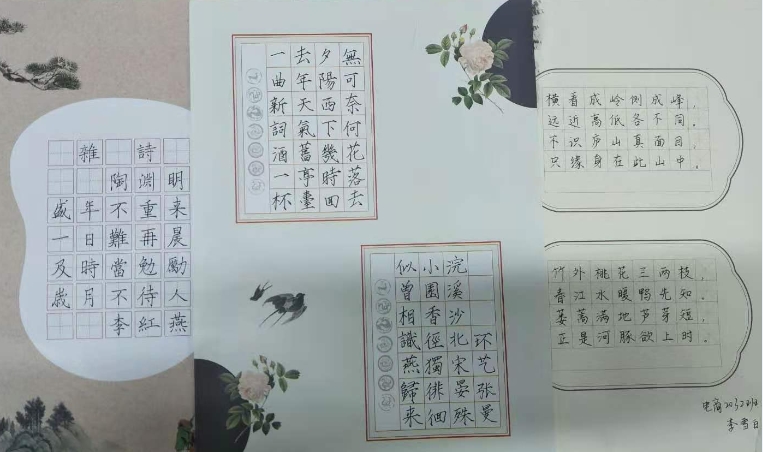 雜詩
陶淵明
盛年不重来
一日難再晨
及時當勉勵
歲月不待人
李紅燕
一曲新詞酒一杯
去年天氣舊亭臺
夕陽西下幾時回
無可奈何花落去
似曾相識燕歸来
小園香徑獨徘徊
浣溪沙北宋晏殊
环艺张曼
横看成岭侧成峰，
远近高低各不同。
不识庐山真面目，
只缘身在此山中。
竹外桃花三两枝，
春江水暖鸭先知。
蒌蒿满地芦芽短，
正是河豚欲上时。
电商
李雪